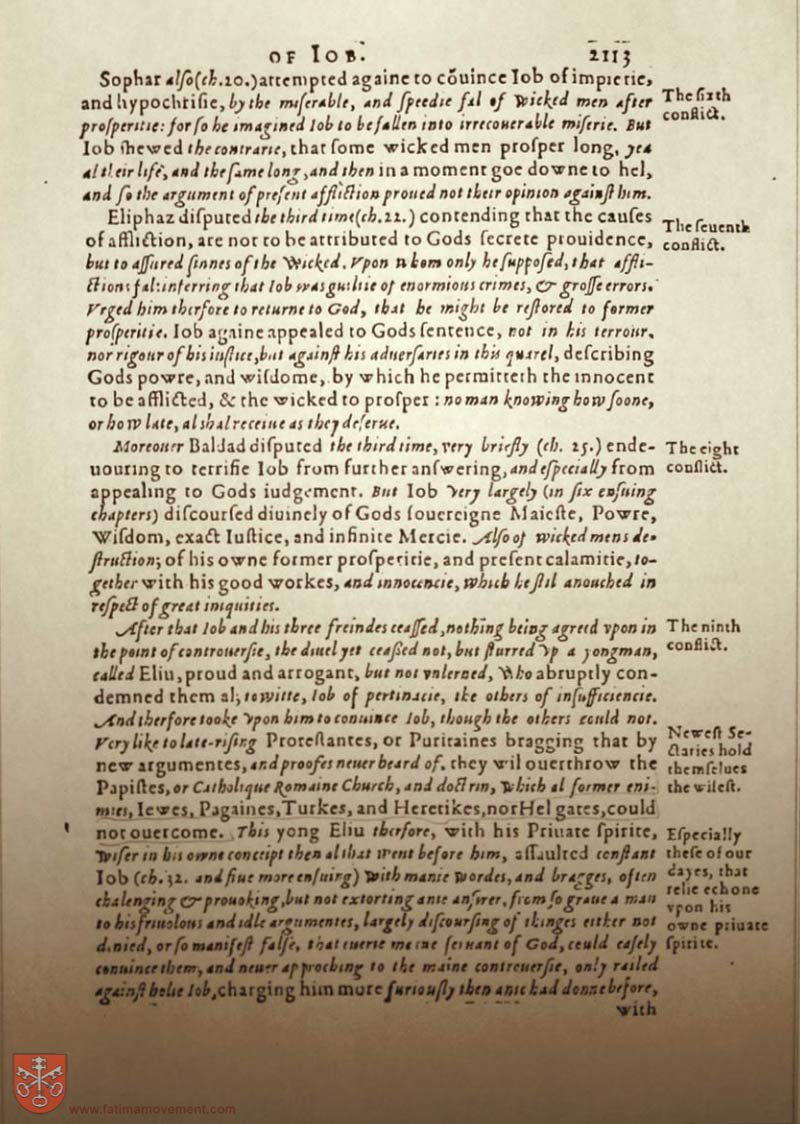 OF IOB. 2113
Sophar alſo (ch. 20.) attempted againe to cõuince Iob of impietie,
and hypochriſie, by the miſerable, and ſpeedie fal of wicked men after
proſperitie: for ſo he imagined Iob to be fallen into irrecouerable miſerie. But
Iob ſhewed the contrarie, that ſome wicked men proſper long, yea
al their life, and the ſame long, and then in a moment goe downe to hel,
and ſo the argument of preſent affliction proued not their opinion againſt him.
The ſixth
conflict.
Eliphaz diſputed the third time (ch. 22.) contending that the cauſes
of affliction, are not to be attributed to Gods ſecrete prouidence,
but to aſſured ſinnes of the wicked. Vpon whom only he ſuppoſed, that affli-
ctions fal: inferring that Iob was guiltie of enormious crimes, & groſſe errors.
Vrged him therfore to returne to God, that he might be reſtored to former
proſperitie. Iob againe appealed to Gods ſentence, not in his terrour,
nor rigour of his iuſtice, but againſt his aduerſaries in this quarel, deſcribing
Gods powre, and wiſdome, by which he permitteth the innocent
to be afflicted, & the wicked to proſper: no man knowing how ſoone,
or how late, al shal receiue as they deſerue.
The ſeuenth
conflict.
Moreouer Baldad diſputed the third time, very briefly (ch. 25.) ende-
uouring to terrifie Iob from further anſwering, and eſpecially from
appealing to Gods iudgement. But Iob very largely (in ſix enſuing
chapters) diſcourſed diuinely of Gods ſouereigne Maieſtie, Powre,
Wiſdom, exact Iuſtice, and infinite Mercie. Alſo of wicked mens de-
ſtruction; of his owne former proſperitie, and preſent calamitie, to-
gether with his good workes, and innocencie, which he ſtil auouched in
reſpect of great iniquities.
The eight
conflict.
After that Iob and his three freindes ceaſſed, nothing being agreed vpon in
the point of controuerſie, the diuel yet ceaſſed not, but ſturred vp a yongman,
called Eliu, proud and arrogant, but not vnlerned, who abruptly con-
demned them al; to witte, Iob of pertinacie, the others of inſufficiencie.
And therfore tooke vpon him to conuince Iob, though the others could not.
Very like to late-riſing Proteſtantes, or Puritaines bragging that by
new argumentes, and proofes neuer heard of, they wil ouerthrow the
Papiſtes, or Catholique Romaine Church, and doctrin, which al former eni-
mies, Iewes, Pagaines, Turkes, and Heretikes, nor Hel gates, could
not ouercome. This yong Eliu therfore, with his Priuate ſpirite,
wiſer in his owne conceipt then al that went before him, aſſaulted conſtant
Iob (ch. 32. and fiue more enſuing) with manie wordes, and bragges, often
chalenging & prouoking, but not extorting anie anſwer, from ſo graue a man
to his friuolous and idle argumentes, largely diſcourſing of thinges either not
denied, or ſo manifeſt falſe, that euerie meane ſeruant of God, could eaſely
conuince them, and neuer approching to the maine controuerſie, only railed
againſt holie Iob, charging him more furiouſly then anie had donne before,
with
The ninth
conflict.
Neweſt Se-
ctaries hold
themſelues
the wiſeſt.
Eſpecially
theſe of our
dayes, that
relie echone
vpon his
owne priuate
ſpirite.
www.fatimamovement.com